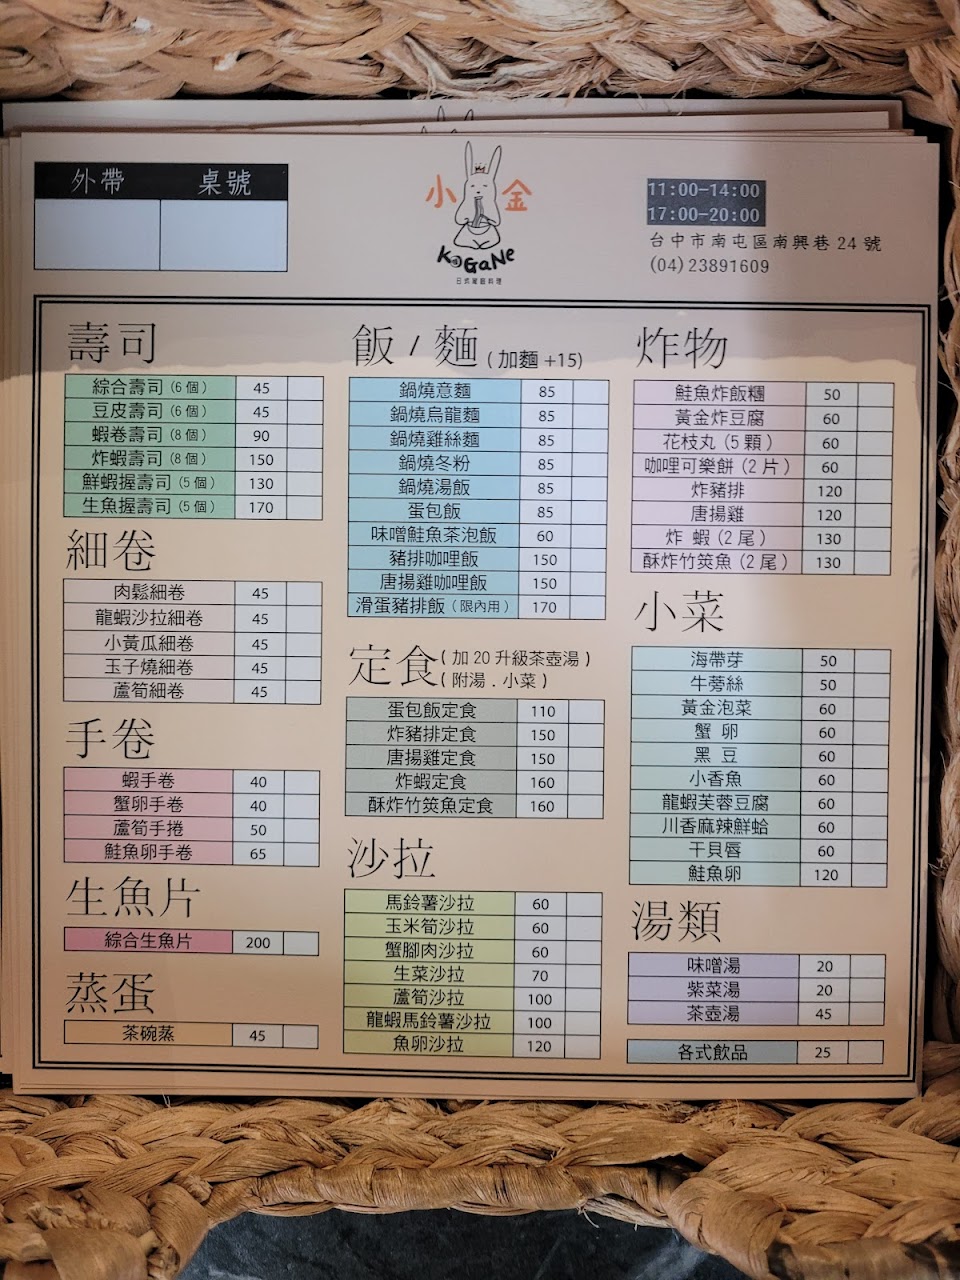 外帶 桌號
小金
KoGaNe
11:00-14:00
17:00-20:00
台中市南屯區南興巷 24 號
(04)23891609
壽司
綜合壽司（6 個） 45
豆皮壽司（6 個） 45
蝦卷壽司（8 個） 90
炸蝦壽司（8 個） 150
鮮蝦握壽司（5 個） 130
生魚握壽司（5 個） 170
細卷
肉鬆細卷 45
龍蝦沙拉細卷 45
小黃瓜細卷 45
玉子燒細卷 45
蘆筍細卷 45
手卷
蝦手卷 40
蟹卵手卷 40
蘆筍手捲 50
鮭魚卵手卷 65
生魚片
綜合生魚片 200
蒸蛋
茶碗蒸 45
飯 / 麵 ( 加麵 +15)
鍋燒意麵 85
鍋燒烏龍麵 85
鍋燒雞絲麵 85
鍋燒冬粉 85
鍋燒湯飯 85
蛋包飯 85
味噌鮭魚茶泡飯 60
豬排咖哩飯 150
唐揚雞咖哩飯 150
滑蛋豬排飯（限內用） 170
定食 ( 加 20 升級茶壺湯 )
( 附湯 . 小菜 )
蛋包飯定食 110
炸豬排定食 150
唐揚雞定食 150
炸蝦定食 160
酥炸竹筴魚定食 160
沙拉
馬鈴薯沙拉 60
玉米筍沙拉 60
蟹腳肉沙拉 60
生菜沙拉 70
蘆筍沙拉 100
龍蝦馬鈴薯沙拉 100
魚卵沙拉 120
炸物
鮭魚炸飯糰 50
黃金炸豆腐 60
花枝丸（5 顆） 60
咖哩可樂餅（2 片） 60
炸豬排 120
唐揚雞 120
炸 蝦（2 尾） 130
酥炸竹筴魚（2 尾） 130
小菜
海帶芽 50
牛蒡絲 50
黃金泡菜 60
蟹 卵 60
黑 豆 60
小香魚 60
龍蝦芙蓉豆腐 60
川香麻辣鮮蛤 60
干貝唇 60
鮭魚卵 120
湯類
味噌湯 20
紫菜湯 20
茶壺湯 45
各式飲品 25